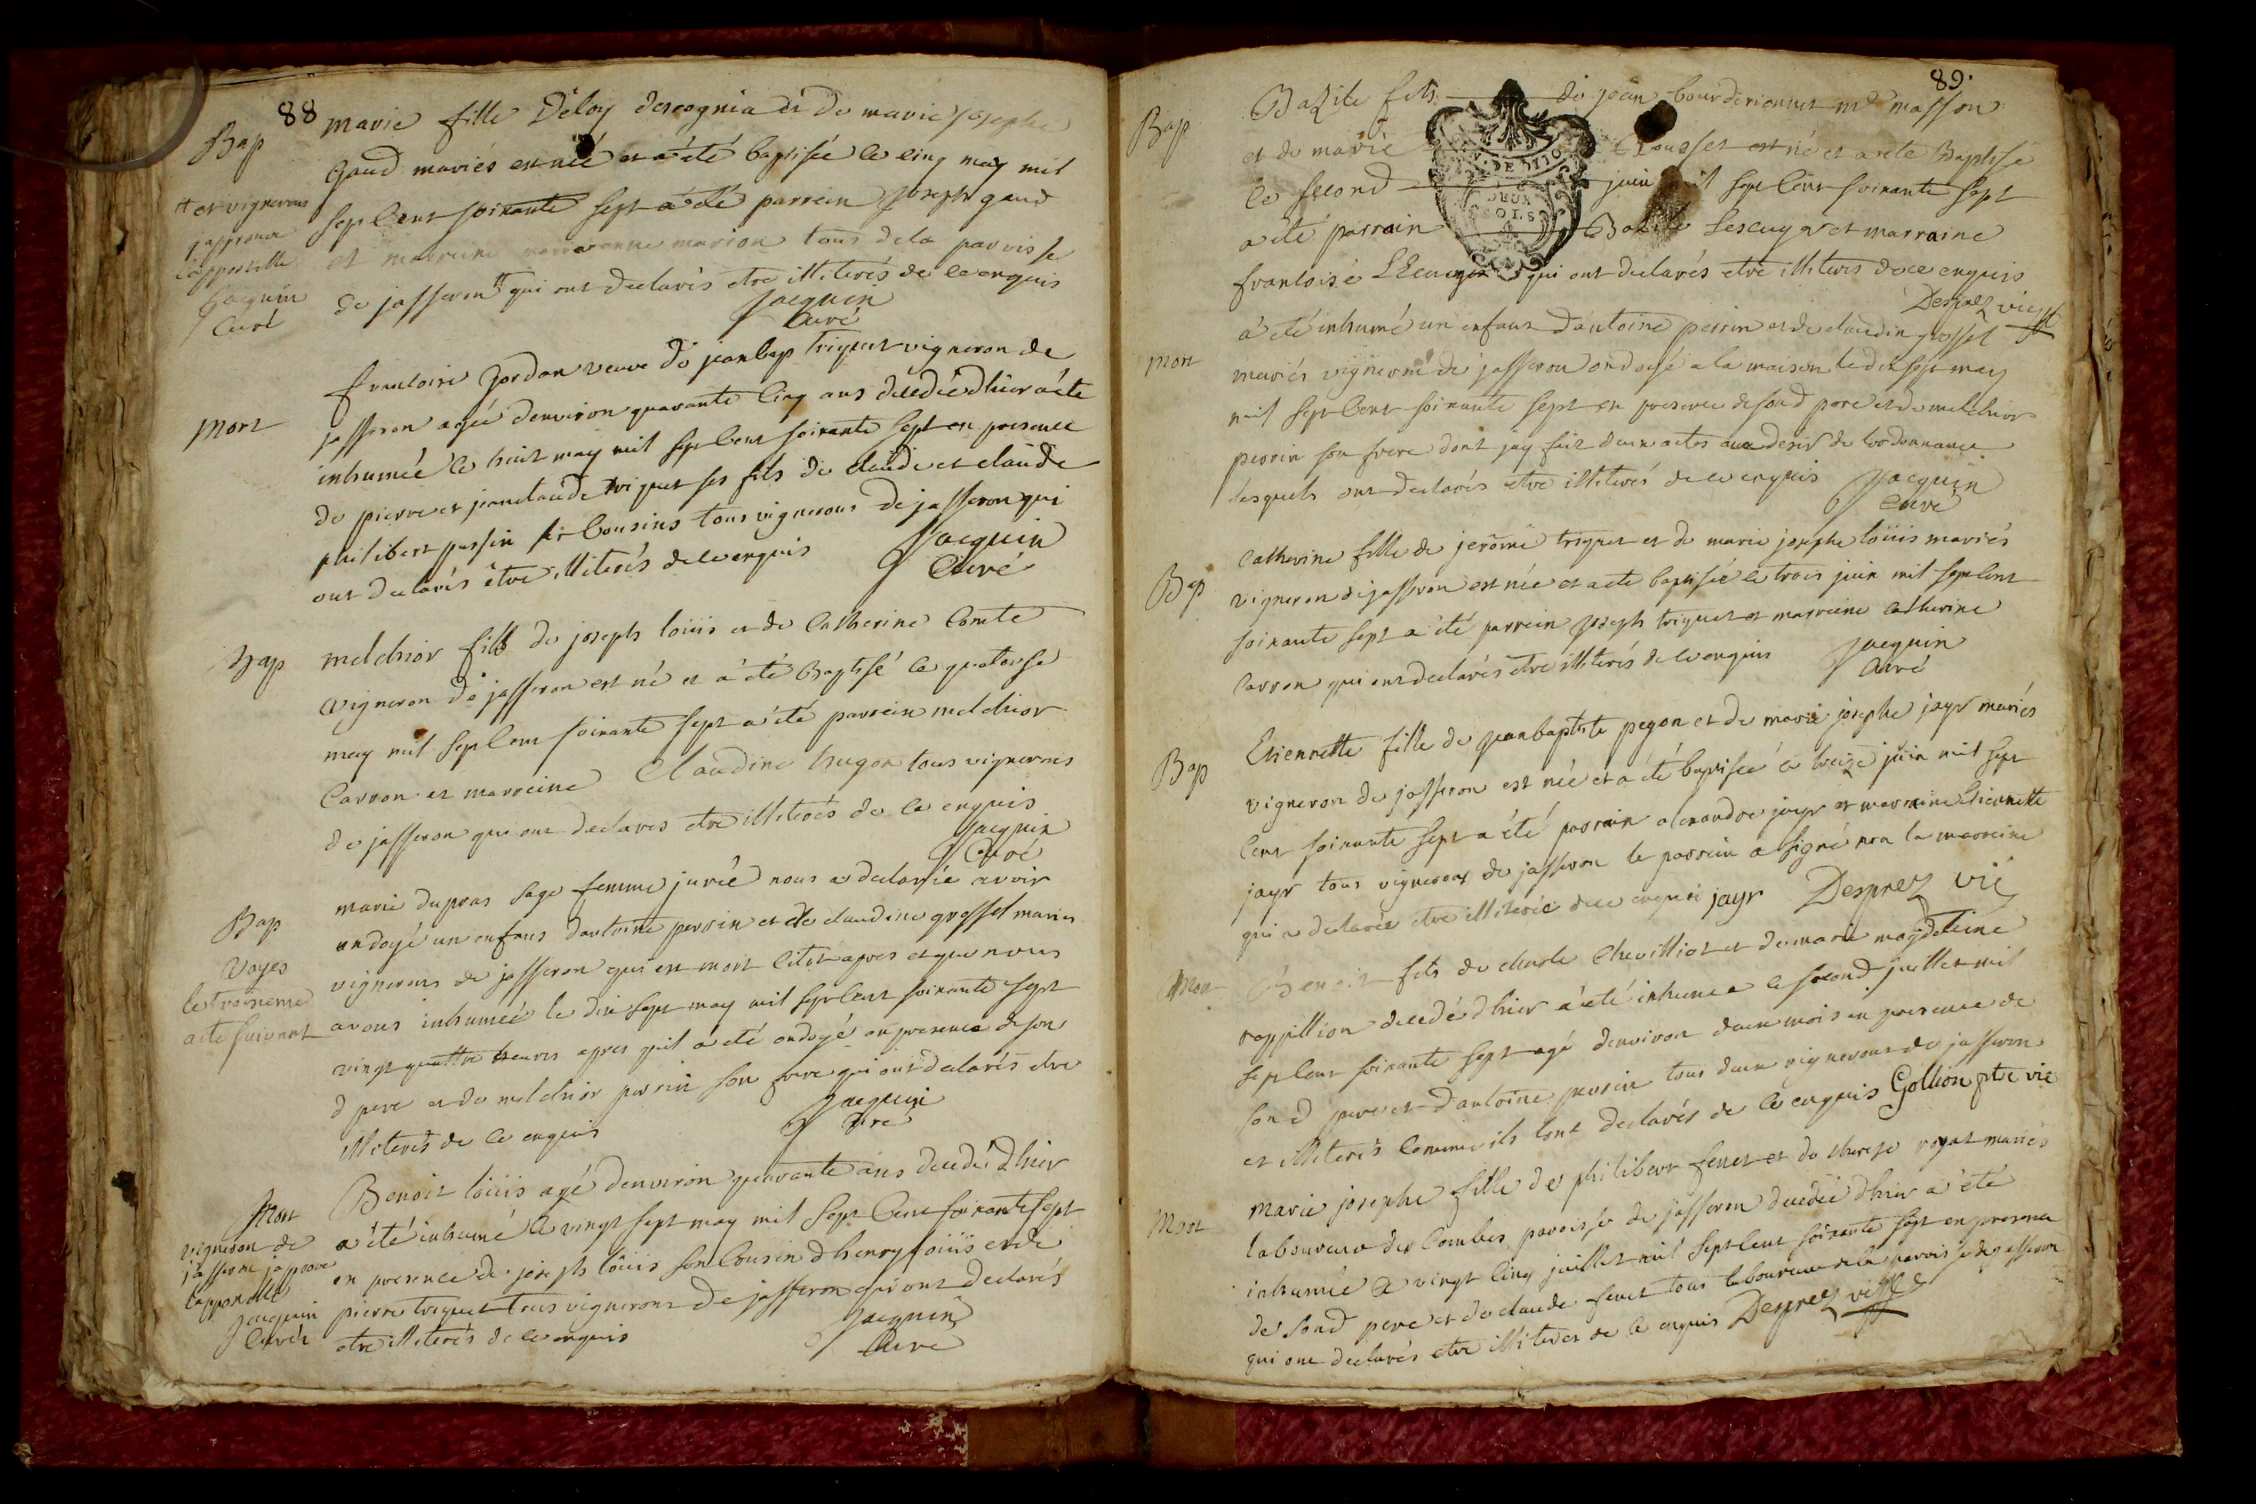 88
Bap
marie fille Déloy descognia et de marie josephe
gaud mariés est née et a été baptisée le cinq may mil
sept cent soixante sept a été parrein joseph gaud
et marreine marion tous de la parroisse
de jasseron # qui ont declarés etre illiterés de ce enquis
jacquin
Curé
# et vignerons
japprouve
lappostille
jacquin
Curé
Mort
francoise jordan veuve de jean bap triquet vigneron de
jasseron agée denviron quarante cinq ans décedée dhier a été
inhumée le huit may mil sept cent soixante sept en presence
de pierre et jean claude triquet ses fils de claude et claude
philibert perrin ses cousins tous vignerons de jasseron qui
ont declarés être illiterés de ce enquis
jacquin
Curé
Bap
melchior fils de joseph loüis et de Catherine Comte
vigneron de jasseron est né et a été Baptisé le quatorse
may mil sept cent soixante sept a été parrein melchior
Carron et marreine Claudine hugon tous vignerons
de jasseron qui ont declarés etre illiterés de ce enquis
jacquin
Curé
Bap
Voyes
le troisieme
acte suivant
marie dupras sage femme jurée nous a declarée avoir
ondoyé un enfans dantoine perrin et de claudine grosset mariés
vignerons de jasseron qui est mort citôt apres et que nous
avons inhumée le dix sept may mil sept cent soixante sept
vingt quattre heures apres quil a été ondoyé en presence de son
d pere et de melchior perrin son frere qui ont declarés etre
illiterés de ce enquis
jacquin
Curé
Mort
Benoit loüis agé denviron quarante ans decedé dhier
a été inhumé le vingt sept may mil sept cent soixante sept
en presence de joseph loüis son Cousin dhenry loüis et de
pierre triquet tous vignerons de jasseron qui ont declarés
etre illiterés de ce enquis
jacquin
Curé
vigneron de
jasseron japrouve
lappostille
jacquin
Curé
89.
Bap
Bazile fils de jean bourderionnet md masson
et de marie Chousset est né et a eté Baptisé
le second juin mil sept cent soixante sept
a été parrain Bazile Lescuyer et marraine
francoise LEcuyer qui ont declarés etre illiterés de ce enquis
Desprez vic
Mort
a été inhumé un enfant dantoine perrin et de claudin grosset
mariés vignerons de jasseron ondoyé a la maison le dix sept may
mil sept cent soixante sept en presence de sond pere et de melchior
perrin son frere dont jay fait deux actes au desir de lordonnance
lesquels ont declarés etre illiterés de ce enquis
jacquin
Curé
Bap
Catherine fille de jerôme triquet et de marie josephe loüis mariés
vigneron de jasseron est née et a eté baptisée le trois juin mil sept cent
soixante sept a été parrein joseph triquet et marreine Catherine
Carron qui ont declarés etre illiterés de ce enquis
jacquin
Curé
Bap
Etiennette fille de jean baptiste pegon et de marie josephe jayr mariés
vigneron de jasseron est née et a été baptisée le treize juin mil sept
Cent soixante sept a été parrain alexandre jayr et marraine Etiennette
jayr tous vignerons de jasseron le parrain a signé non la marreine
qui a declarée etre illiterée de ce enquise jayr Desprez vic
Mort
Benoit fils de charle Chevilliot et de marie magdeleine
rappillion decedé dhier a été inhumé le second juillet mil
sept cent soixante sept agé denviron deux mois en presence de
son d pere et dantoine perrin tous deux vignerons de jasseron
et illiterés Comme ils lont declarés de ce enquis Gollion ptre vic
Mort
Marie josephe fille de philibert feret et de therese royat mariés
laboureur des Combes paroisse de jasseron decedée dhier a été
inhumée le vingt cinq juillet mil sept cent soixante sept en presence
de sond pere et de claude feret tous laboureurs de la parroisse de jasseron
qui ont declarés etre illiterés de ce enquis Desprez vic